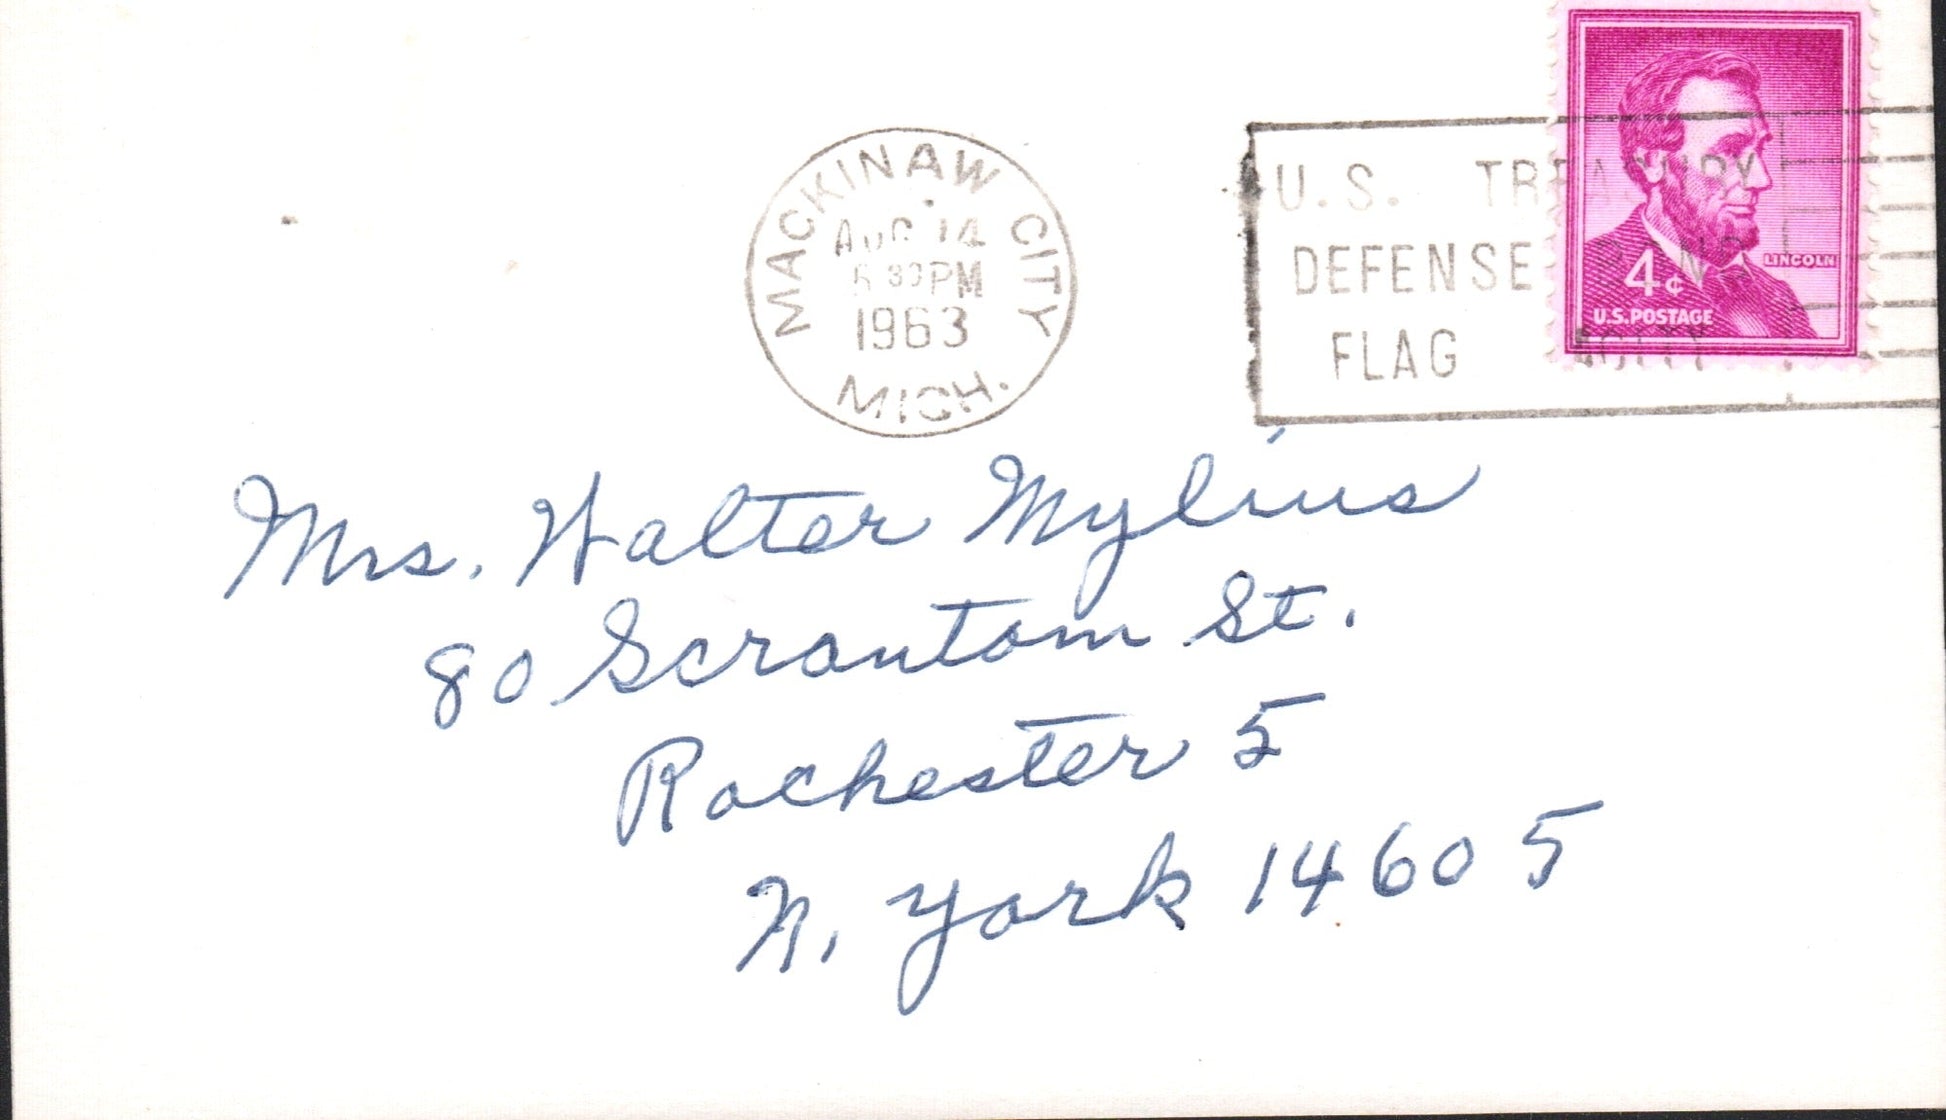 MACKINAW CITY
AUG 14
PM
1963
MICH.
U.S. TREASURY
DEFENSE
FLAG
LINCOLN
4¢
U.S.POSTAGE
Mrs. Walter Mylius
80 Scrantom St.
Rochester 5
N. York 14605